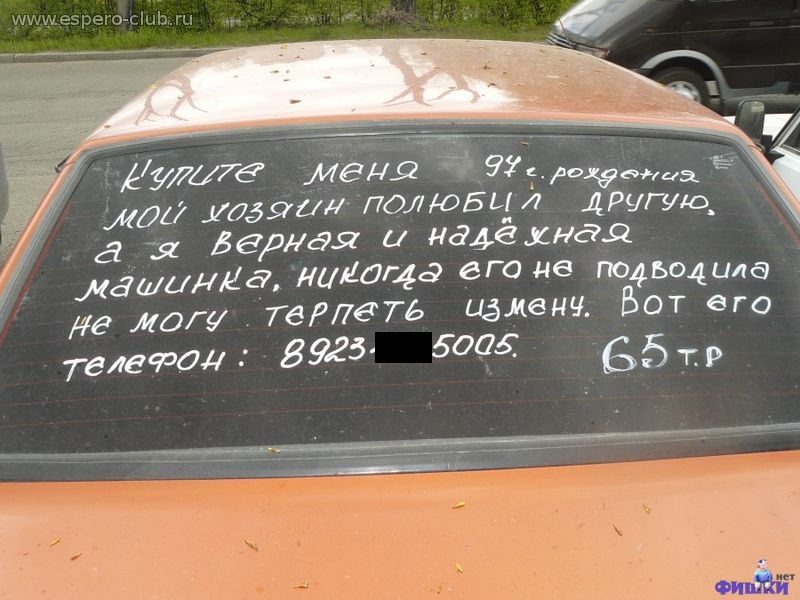 www.espero-club.ru
КУПИТЕ МЕНЯ 97 г. рождения
МОЙ ХОЗЯИН ПОЛЮБИЛ ДРУГУЮ,
а я Верная и надёжная
машинка. никогда его не подводила
не могу терпеть измену. Вот его
телефон: 8923 5005. 65 т.р
ФИШКИ нет